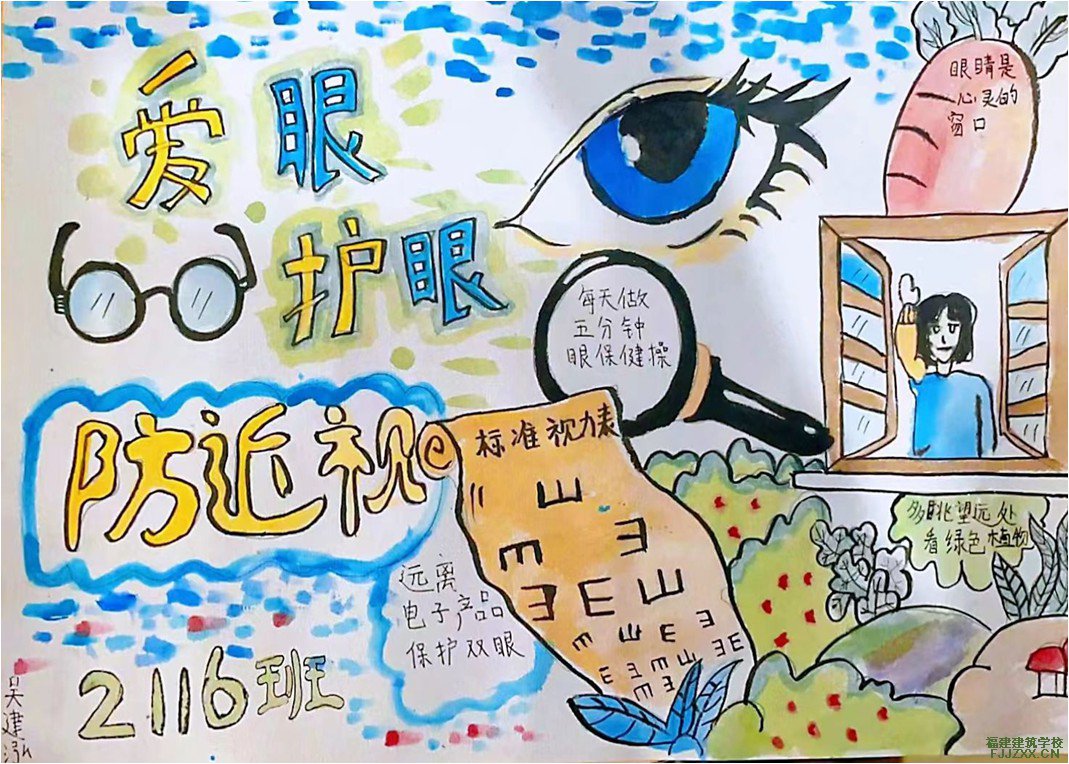 爱眼
护眼
眼睛是
心灵的
窗口
每天做
五分钟
眼保健操
防近视
标准视力表
多眺望远处
看绿色植物
远离
电子产品
保护双眼
2116班
吴建泓
福建建筑学校
FJJZXX.CN